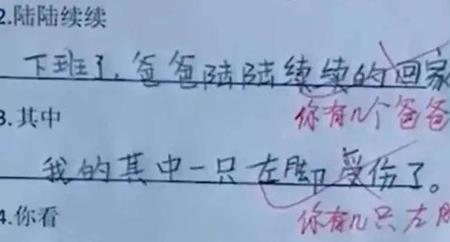 2.陆陆续续
下班了,爸爸陆陆续续的回家
你有几个爸爸
3.其中
我的其中一只左脚受伤了。
你有几只左脚
4.你看